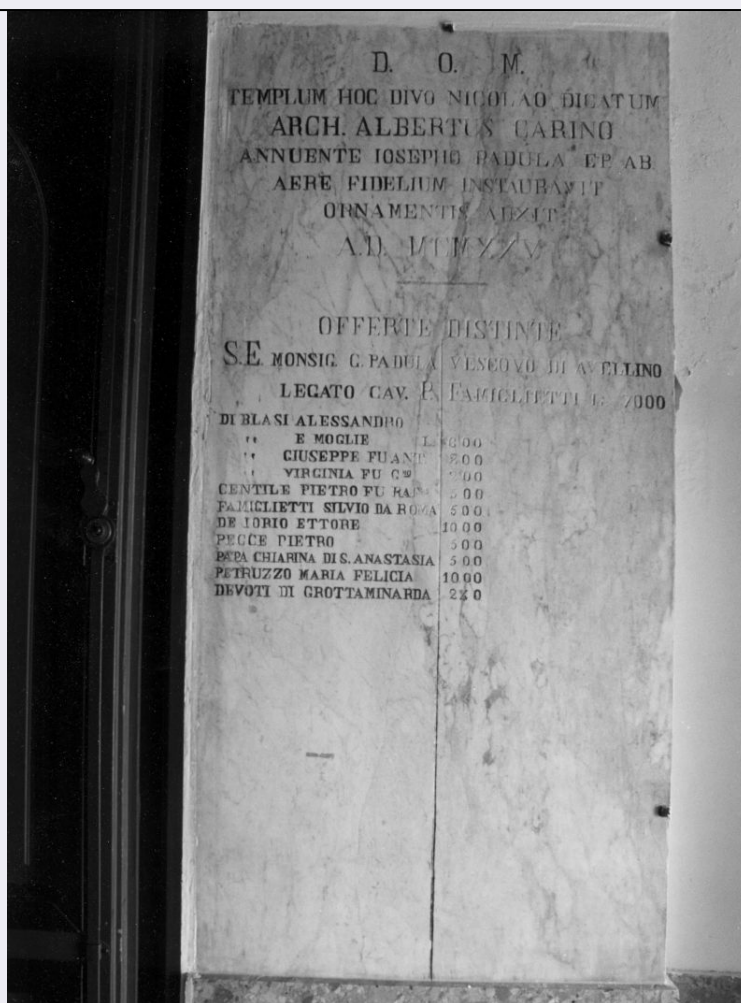 D. O. M.
TEMPLUM HOC DIVO NICOLAO DICATUM
ARCH. ALBERTUS CARINO
ANNUENTE IOSEPHO PADULA EP. AB.
AERE FIDELIUM INSTAURAVIT
ORNAMENTIS AUXIT
A.D. MCMXXV
OFFERTE DISTINTE
S.E. MONSIG. G. PADULA VESCOVO DI AVELLINO
LEGATO CAV. P. FAMIGLIETTI L. 7000
DI BLASI ALESSANDRO
" E MOGLIE L.
" GIUSEPPE FU ANT.
" VIRGINIA FU
GENTILE PIETRO FU 500
FAMIGLIETTI SILVIO DA ROMA 500
DE IORIO ETTORE 1000
PECCE PIETRO 500
PAPA CHIARINA DI S. ANASTASIA 500
PETRUZZO MARIA FELICIA 1000
DEVOTI DI GROTTAMINARDA